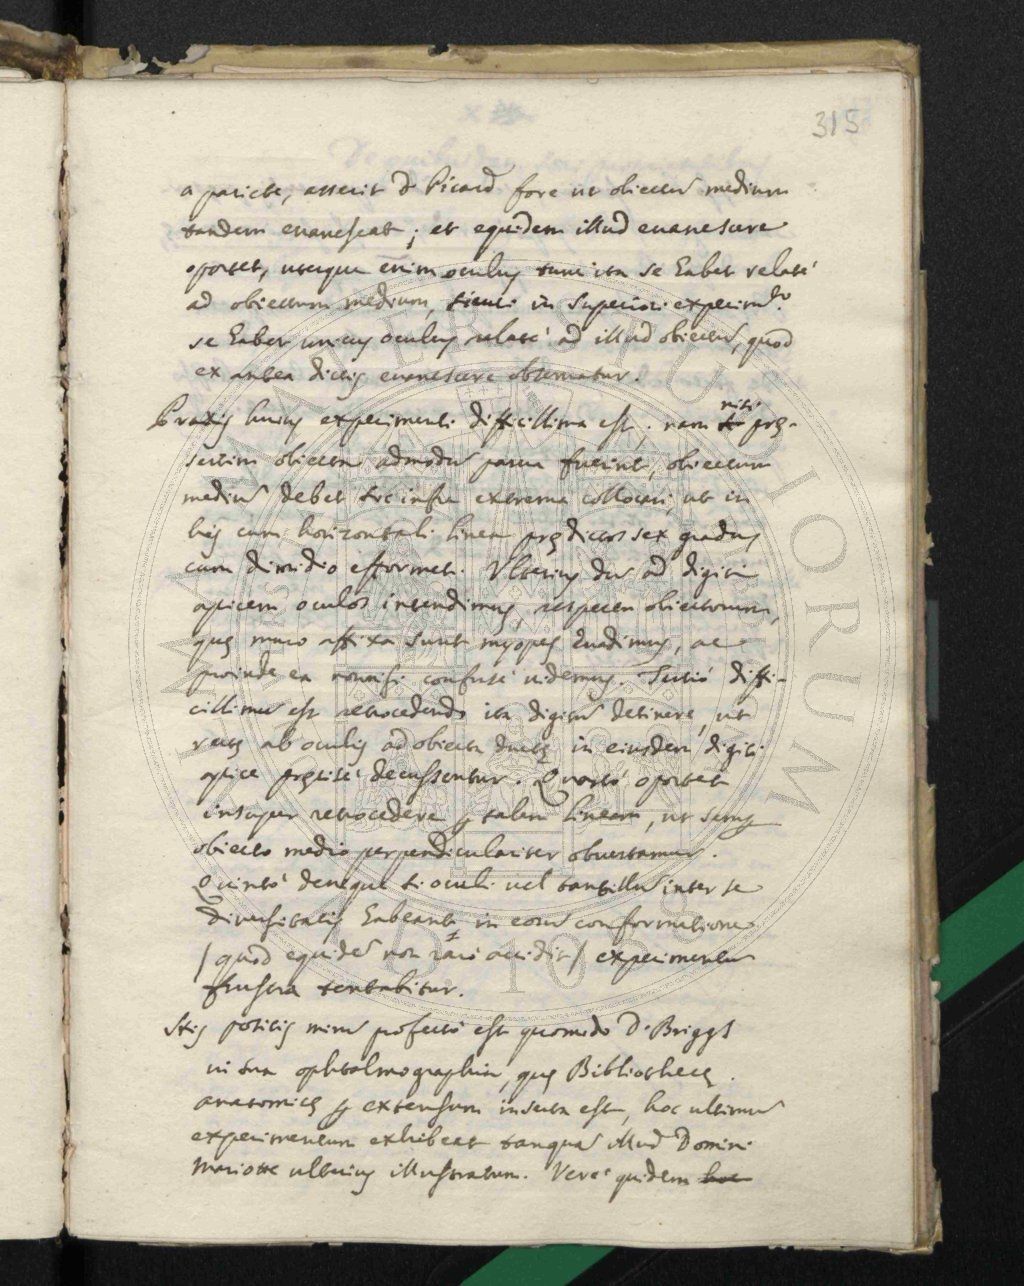 315
a pariete, asserit D. Picard fore ut obiectū medium
tandem evanescat; et equidem illud evanescere
oportet, uterque enim oculus tunc ita se habet relatè
ad obiectum medium, sicuti in superiori experim.to
se habet unicus oculus relatè ad illud obiectū, quod
ex antea dictis evanescere observatur.
Praxis huius experimenti difficillima est; nam nisi prę-
sertim obiecta admodū parva fuerint, obiectum
mediū debet sic infra extrema collocari, ut in
his cum horizontali linea prędictos sex gradus
cum dimidio efformet. Ulterius dū ad digiti
apicem oculos intendimus, respectu obiectorum,
quę muro affixa sunt myopes evadimus, ac
proinde ea nonnisi confusè videmus. Tertiò diffi-
cillimū est retrocedendo ita digitū detinere, ut
rectę ab oculis ad obiecta ductę in eiusdem digiti
apice pręcisè decussentur. Quartò oportet
insuper retrocedere p talem lineam, ut semp
obiecto medio perpendiculariter obvertamur.
Quintò denique si oculi vel tantillū inter se
diversitatis habeant in eorū conformatione
/ quod equidē non rarò accidit / experimentū
frustra tentabitur.
His positis mirū profectò est quomodo D. Briggs
in sua ophtalmographia, quę Bibliothecę
anatomicę p extensum inserta est, hoc ultimū
experimentum exhibeat tanquā illud Domini
Mariotte ulterius illustratum. Verè quidem hoc
UNIVERSITY COLLEGIORUM
AD 1088